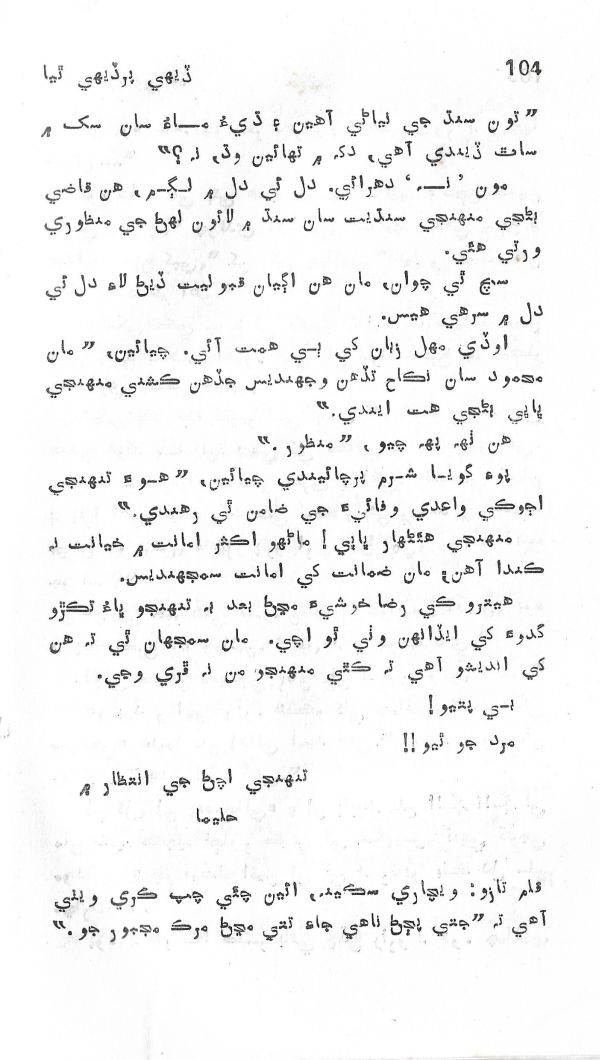 104
ڏيهي پرڏيهي ٿيا
”تون سنڌ جي نياڻي آهين ۽ ڌيءُ مـــاءُ سان سک ۾
ساٿ ڏيندي آهي، دک ۾ تهائين وڌ، نہ ؟“
مون ’نـــہ‘ دهرائي. دل ئي دل ۾ لـڳـم، هن قاضي
بڻجي منهنجي سنڌيت سان سنڌ ۾ لائون لهڻ جي منظوري
ورتي هئي.
سچ ٿي چوان، مان هن اڳيان قبوليت ڏيڻ لاءِ دل ئي
دل ۾ سرهي هيس.
اوڏي مهل زبان کي بـي همت آئي. چيائين، ”مان
محمود سان نڪاح تڏهن وجهنديس جڏهن ڪشني منهنجي
ڀاڀي بڻجي هت ايندي.“
هن ٺهہ پهہ چيو، ”منظور.“
پوءِ گويـا شـرم پرچائيندي چيائين، ”هـوءَ تنهنجي
اڄوڪي واعدي وفائيءَ جي ضامن ٿي رهندي.“
منهنجي هڻهار ڀاڀي! ماڻهو اڪثر امانت ۾ خيانت نہ
ڪندا آهن؛ مان ضمانت کي امانت سمجهنديس.
هيترو ڪي رضا خوشيءَ مڃڻ بعد بہ تنهنجو ڀاءُ تڪڙو
گدوءَ کي ايڏانهن وٺي ٿو اچي. مان سمجهان ٿي تہ هن
کي انديشو آهي تہ ڪٿي منهنجو من نہ ڦري وڃي.
بـي پتيو!
مرد جو ٿيو!!
تنهنجي اچڻ جي انتظار ۾
حليما
قلم تازو: ويچاري سڪينہ، ائين چئي چپ ڪري ويئي
آهي تہ ”جتي پڄڻ ناهي جاءِ تتي مڃڻ مرڪ مجبور جو.“